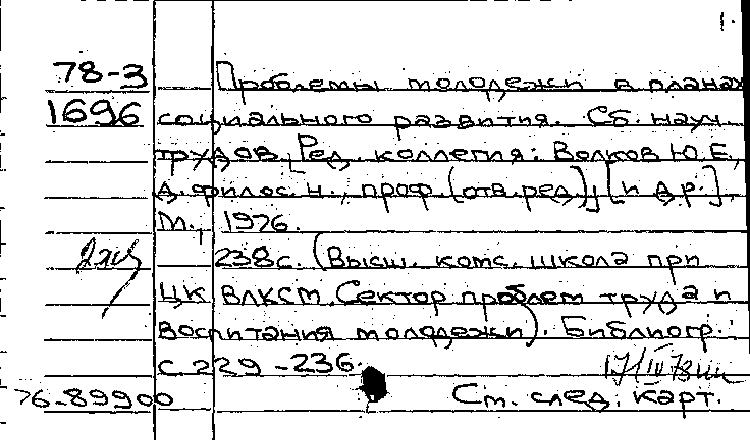 1.
78-3 Проблемы молодежи в планах
1696 социального развития. Сб. науч.
трудов. [Ред. коллегия: Волков Ю.Е.,
д. филос. н., проф. (отв. ред.)] [и др.].
М., 1976.
2 экз 238 с. (Высш. комс. школа при
ЦК ВЛКСМ. Сектор проблем труда и
воспитания молодежи). Библиогр.:
с. 229-236.
76-89900 См. след. карт.